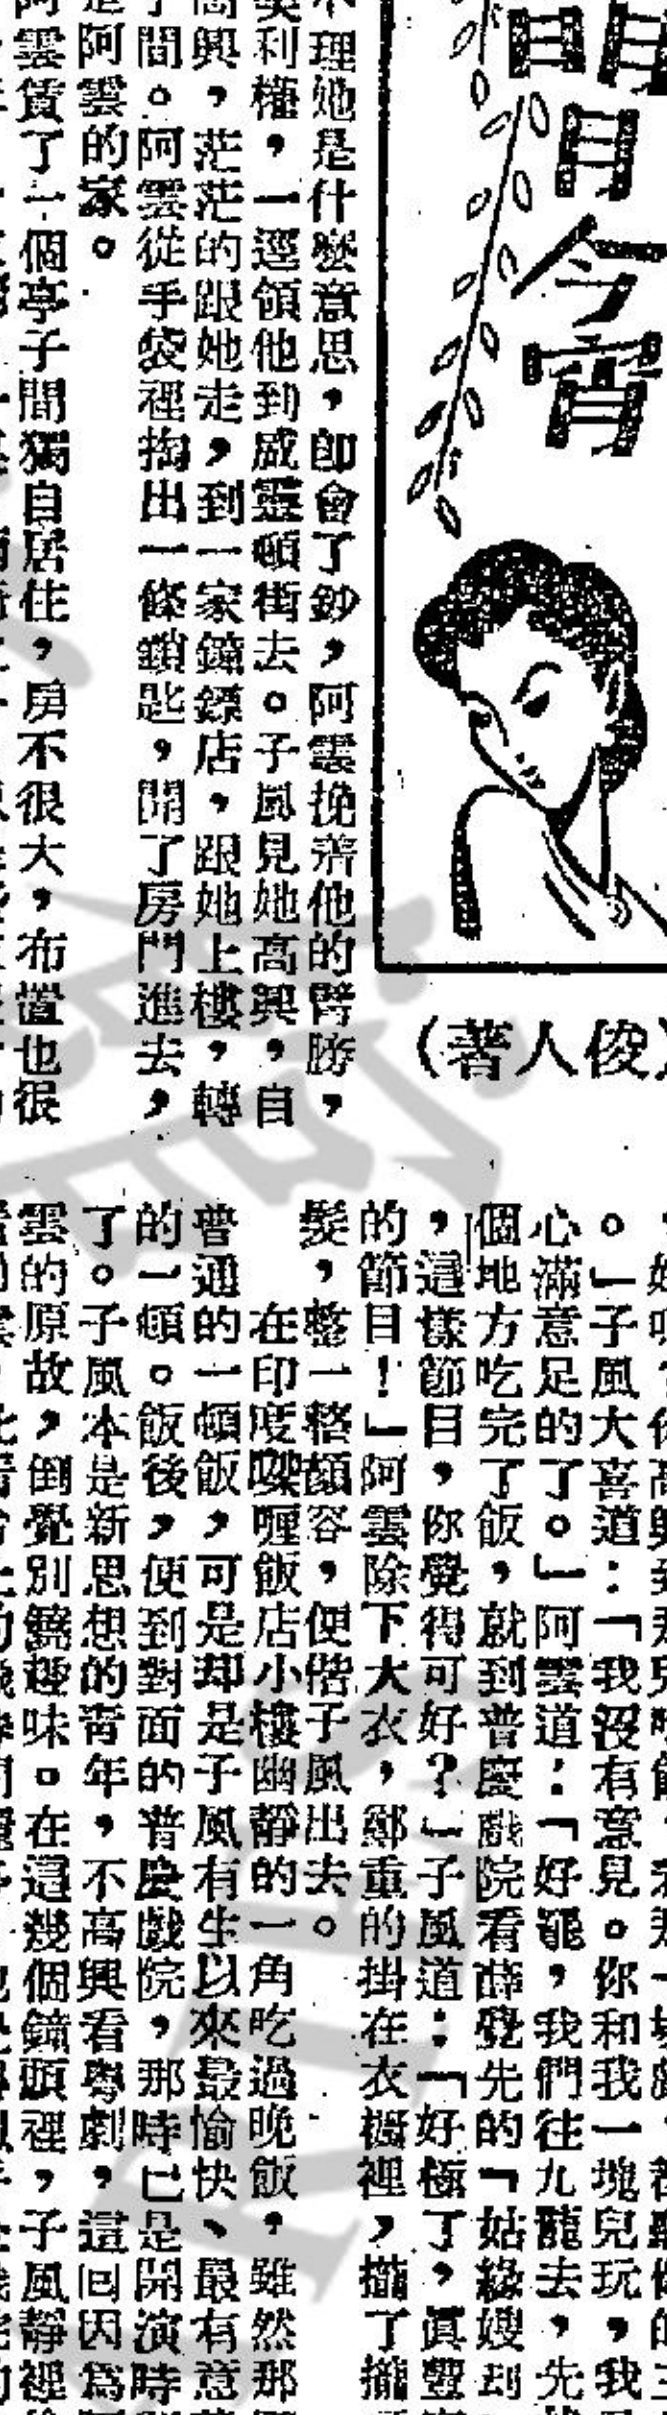 明日今宵
（俊人著）
不理她是什麼意思，即會了鈔，阿雲挽着他的臂膀，
利權，一逕領他到威靈頓街去。子風見她高興，自
高興，茫茫的跟她走，到一家鐘鏢店，跟她上樓，轉
間。阿雲從手袋裡掏出一條鎖匙，開了房門進去，
是阿雲的家。
阿雲賃了一個亭子間獨自居住，房不很大，布置也很
。」子風大喜道：「我沒有意見。你和我一塊兒玩，我
心滿意足的了。」阿雲道：「好罷，我們往九龍去，先
個地方吃完了飯，就到普慶戲院看薛覺先的『姑緣嫂
』，這樣節目，你覺得可好？」子風道：「好極了，真豐
的節目！」阿雲除下大衣，鄭重的掛在衣櫥裡，攏了攏
髮，整一整顏容，便偕子風出去。
在印度㗎喱飯店小樓幽靜的一角吃過晚飯，雖然那
普通的一頓飯，可是却是子風有生以來最愉快、最有意
的一頓。飯後，便到對面的普慶戲院，那時已是開演時
了。子風本是新思想的青年，不高興看粵劇，這回因為
雲的原故，倒覺別饒趣味。在這幾個鐘頭裡，子風靜裡